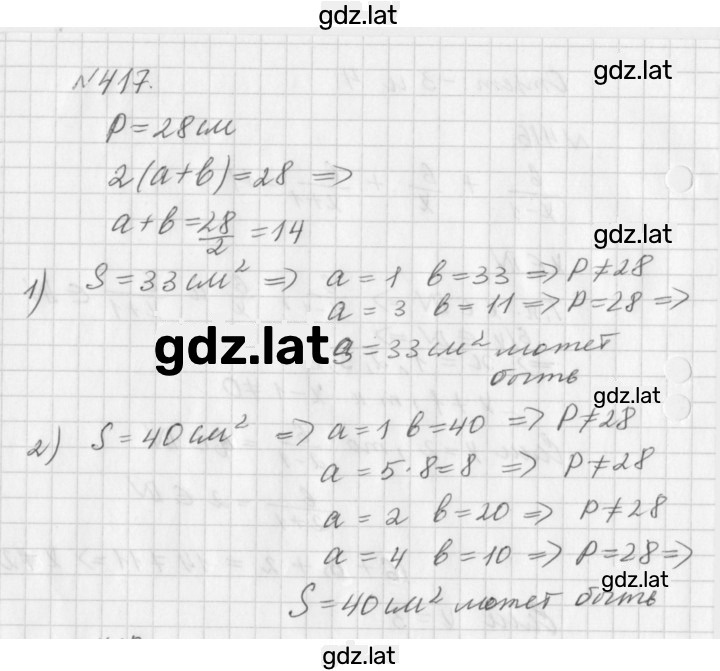 gdz.lat
№417.
gdz.lat
P=28см
2(a+b)=28 ⇒
a+b=28/2=14
gdz.lat
1) S=33см² ⇒ a=1 b=33 ⇒ P≠28
a=3 b=11 ⇒ P=28 ⇒
gdz.lat
S=33см² может
быть
gdz.lat
2) S=40см² ⇒ a=1 b=40 ⇒ P≠28
a=5·8=8 ⇒ P≠28
a=2 b=20 ⇒ P≠28
a=4 b=10 ⇒ P=28 ⇒
gdz.lat
S=40см² может быть
gdz.lat